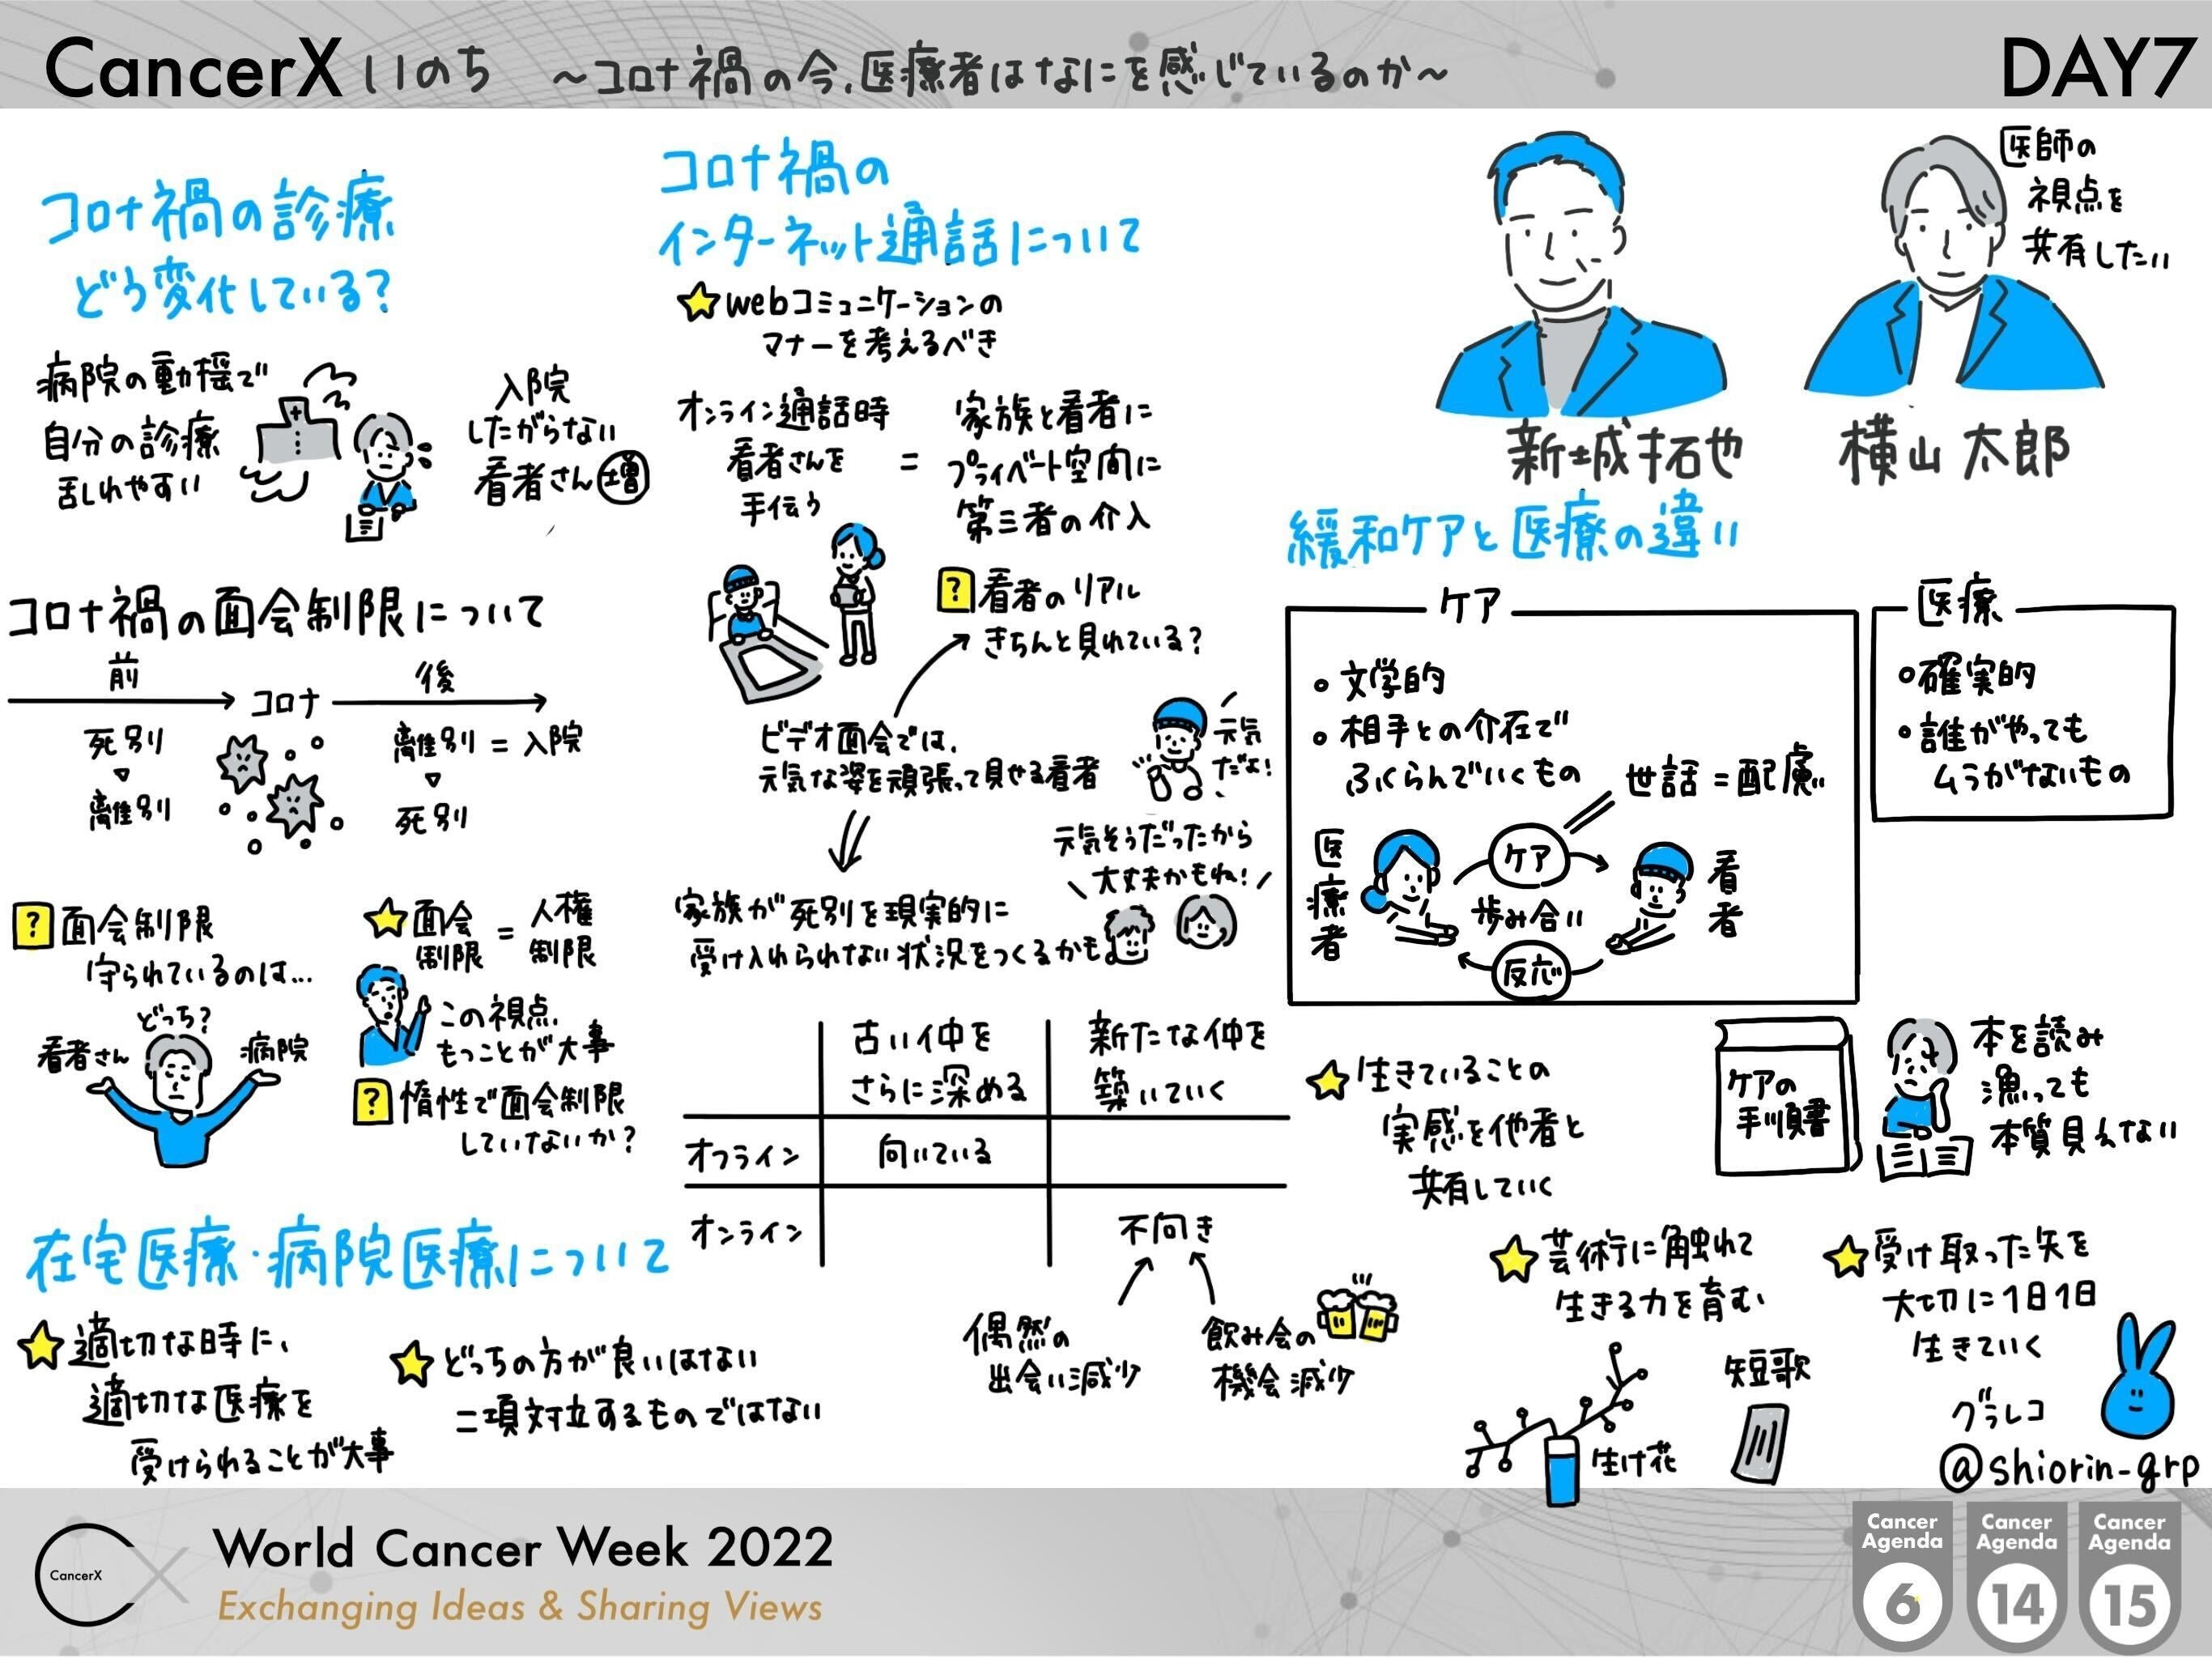 CancerX いのち ～コロナ禍の今、医療者はなにを感じているのか～
DAY7
コロナ禍の診療
どう変化している?
病院の動揺で
自分の診療
乱しれやすい
入院
したがらない
看者さん増
コロナ禍の面会制限について
前
コロナ
後
死別
▽
離別
離別=入院
▽
死別
? 面会制限
守られているのは…
どっち?
看者さん
病院
面会
制限
=
人権
制限
この視点、
もつことが大事
? 惰性で面会制限
していないか?
在宅医療・病院医療について
適切な時に、
適切な医療を
受けられることが大事
どっちの方が良いはない
二項対立するものではない
コロナ禍の
インターネット通話について
webコミュニケーションの
マナーを考えるべき
オンライン通話時
看者さんを
手伝う
=
家族と看者に
プライベート空間に
第三者の介入
? 看者のリアル
きちんと見れている?
ビデオ面会では、
元気な姿を頑張って見せる看者
元気
だよ!
元気そうだったから
大丈夫かもね!
家族が死別を現実的に
受け入れられない状況をつくるかも。
古い仲を
さらに深める
新たな仲を
築いていく
オフライン
向いている
オンライン
不向き
偶然の
出会い減少
飲み会の
機会減少
新城拓也
横山太郎
医師の
視点を
共有したい
緩和ケアと医療の違い
ケア
・文学的
・相手との介在で
ふくらんでいくもの
世話=配慮
医療者
ケア
歩み合い
反応
看者
医療
・確実的
・誰がやっても
ムラがないもの
生きていることの
実感を他者と
共有していく
ケアの
手順書
本を読み
漁っても
本質見えない
芸術に触れて
生きる力を育む
生け花
短歌
受け取った矢を
大切に1日1日
生きていく
グラレコ
@shiorin-grp
CancerX
World Cancer Week 2022
Exchanging Ideas & Sharing Views
Cancer
Agenda
6
Cancer
Agenda
14
Cancer
Agenda
15